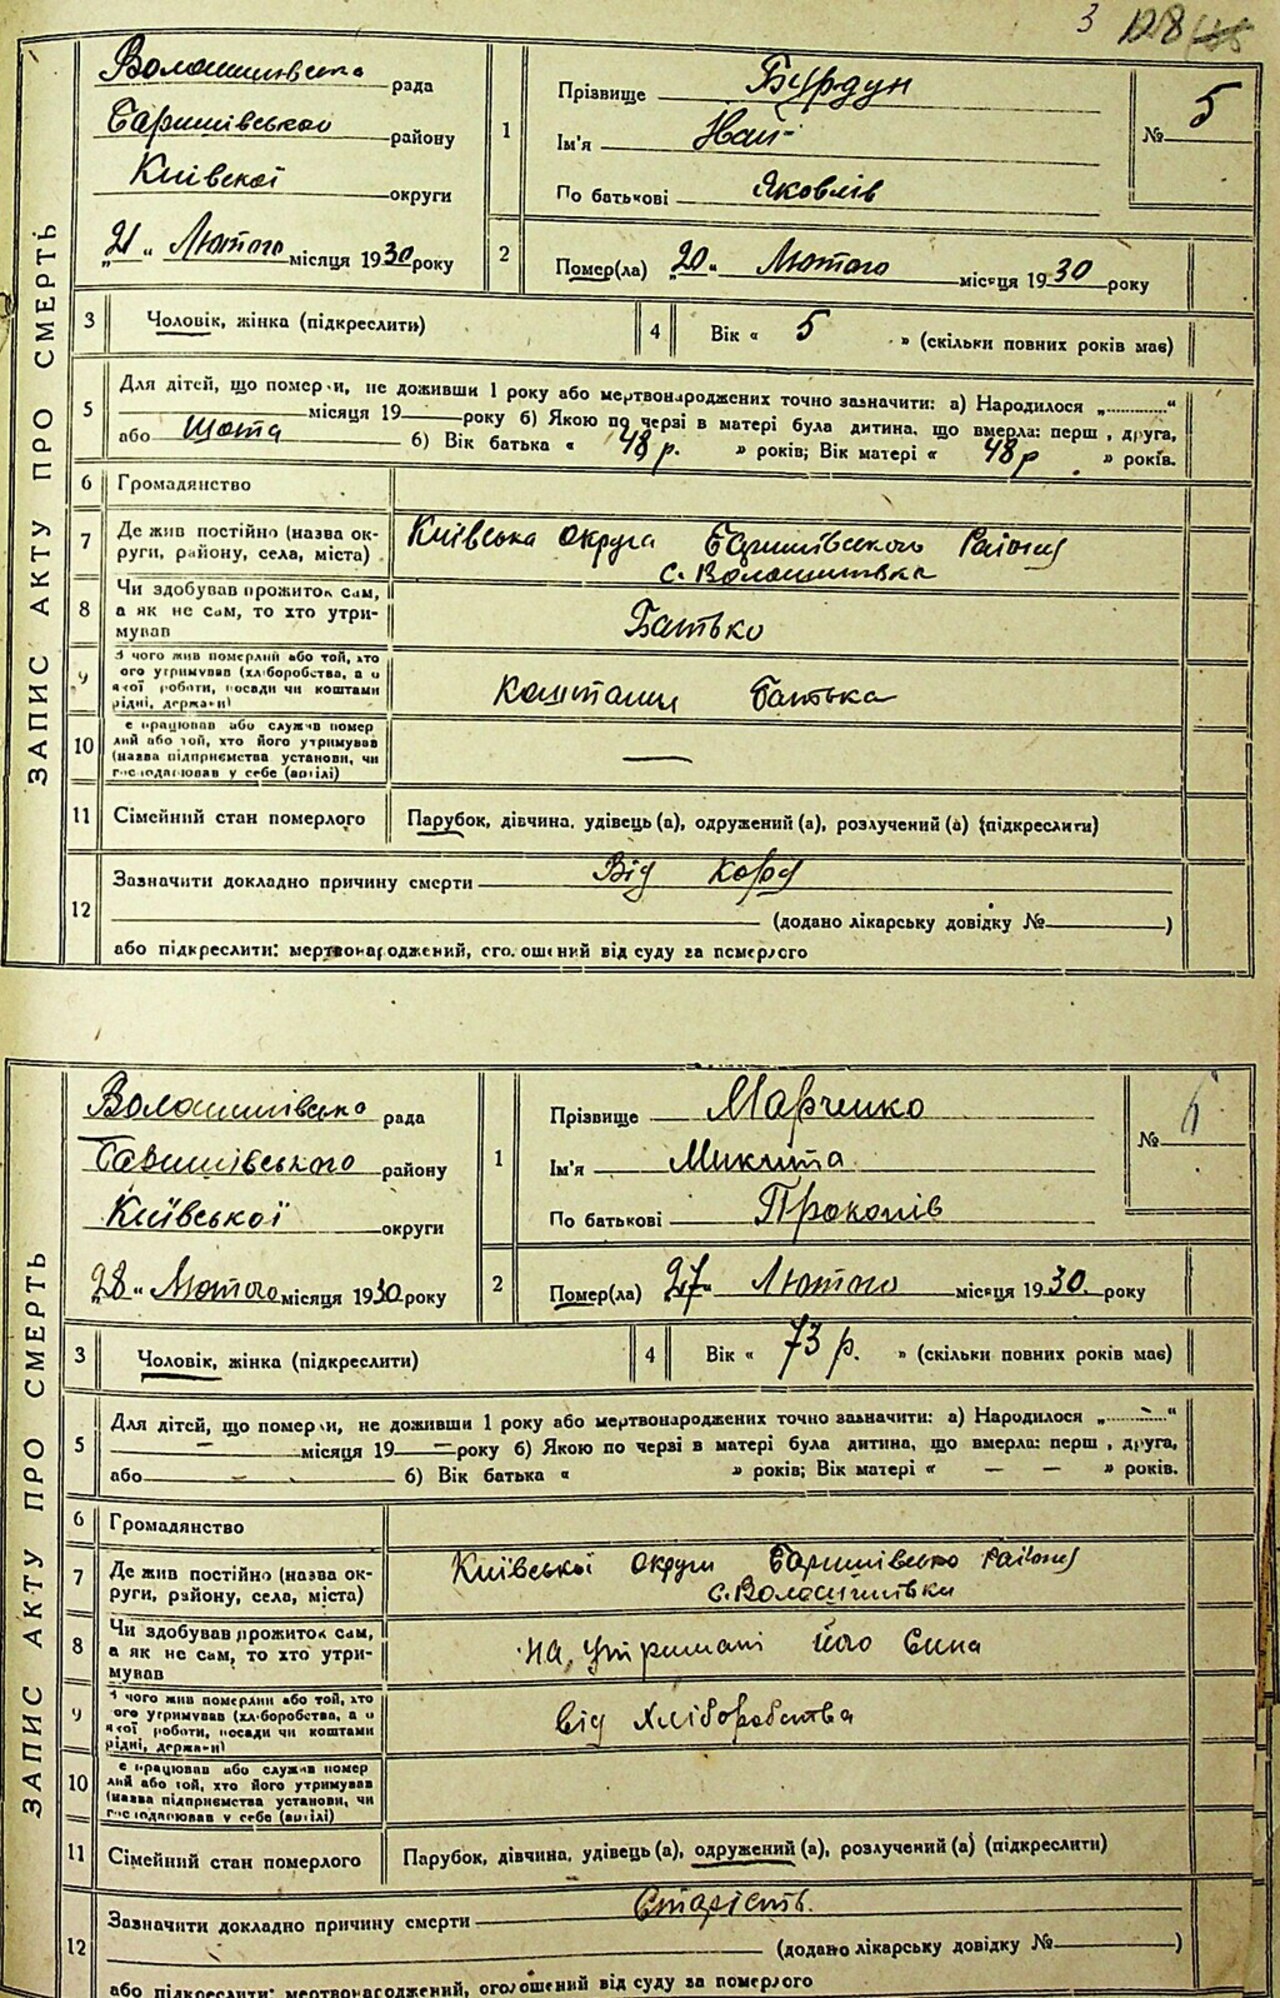 3 128
ЗАПИС АКТУ ПРО СМЕРТЬ
Волошинівська рада
Баришівської району
Київської округи
„21“ Лютого місяця 1930 року
1
Прізвище Бурдун
Ім'я
По батькові Яковлів
№ 5
2
Помер(ла) „20“ Лютого місяця 1930 року
3 Чоловік, жінка (підкреслити)
4 Вік « 5 » (скільки повних років має)
5 Для дітей, що померли, не доживши 1 року або мертвонароджених точно зазначити: а) Народилося „............“
місяця 19 року б) Якою по черзі в матері була дитина, що вмерла: перш , друга,
або Шоста б) Вік батька « 48 р. » років; Вік матері « 48 р » років.
6 Громадянство
7 Де жив постійно (назва ок-
руги, району, села, міста)
Київська округа Баришівського Району
с. Волошинівка
8 Чи здобував прожиток сам,
а як не сам, то хто утри-
мував
Батько
9 З чого жив померлий або той, хто
ого утримував (хліборобства, а о
якої роботи, посади чи коштами
рідні, держави)
Коштами Батька
10 е працював або служив помер
лий або той, хто його утримував
(назва підприємства установи, чи
господарював у себе (артілі)
—
11 Сімейний стан померлого Парубок, дівчина, удівець (а), одружений (а), розлучений (а) (підкреслити)
12 Зазначити докладно причину смерти Від кору
(додано лікарську довідку № )
або підкреслити: мертвонароджений, оголошений від суду за померлого
ЗАПИС АКТУ ПРО СМЕРТЬ
Волошинівсько рада
Баришівського району
Київської округи
„28“ Лютого місяця 1930 року
1
Прізвище Марченко
Ім'я Микита
По батькові Прокопів
№ 6
2
Помер(ла) „27“ Лютого місяця 1930. року
3 Чоловік, жінка (підкреслити)
4 Вік « 73 р. » (скільки повних років має)
5 Для дітей, що померли, не доживши 1 року або мертвонароджених точно зазначити: а) Народилося „............“
— місяця 19 — року б) Якою по черзі в матері була дитина, що вмерла: перш , друга,
або — б) Вік батька « » років; Вік матері « — — » років.
6 Громадянство
7 Де жив постійно (назва ок-
руги, району, села, міста)
Київської округи Баришівсько району
с. Волошинівки
8 Чи здобував прожиток сам,
а як не сам, то хто утри-
мував
на утримані його Сина
9 З чого жив померлий або той, хто
ого утримував (хліборобства, а о
якої роботи, посади чи коштами
рідні, держави)
від хліборобства
10 е працював або служив помер
лий або той, хто його утримував
(назва підприємства установи, чи
господарював у себе (артілі)
11 Сімейний стан померлого Парубок, дівчина, удівець (а), одружений (а), розлучений (а) (підкреслити)
12 Зазначити докладно причину смерти Старість.
(додано лікарську довідку № )
або підкреслити: мертвонароджений, оголошений від суду за померлого